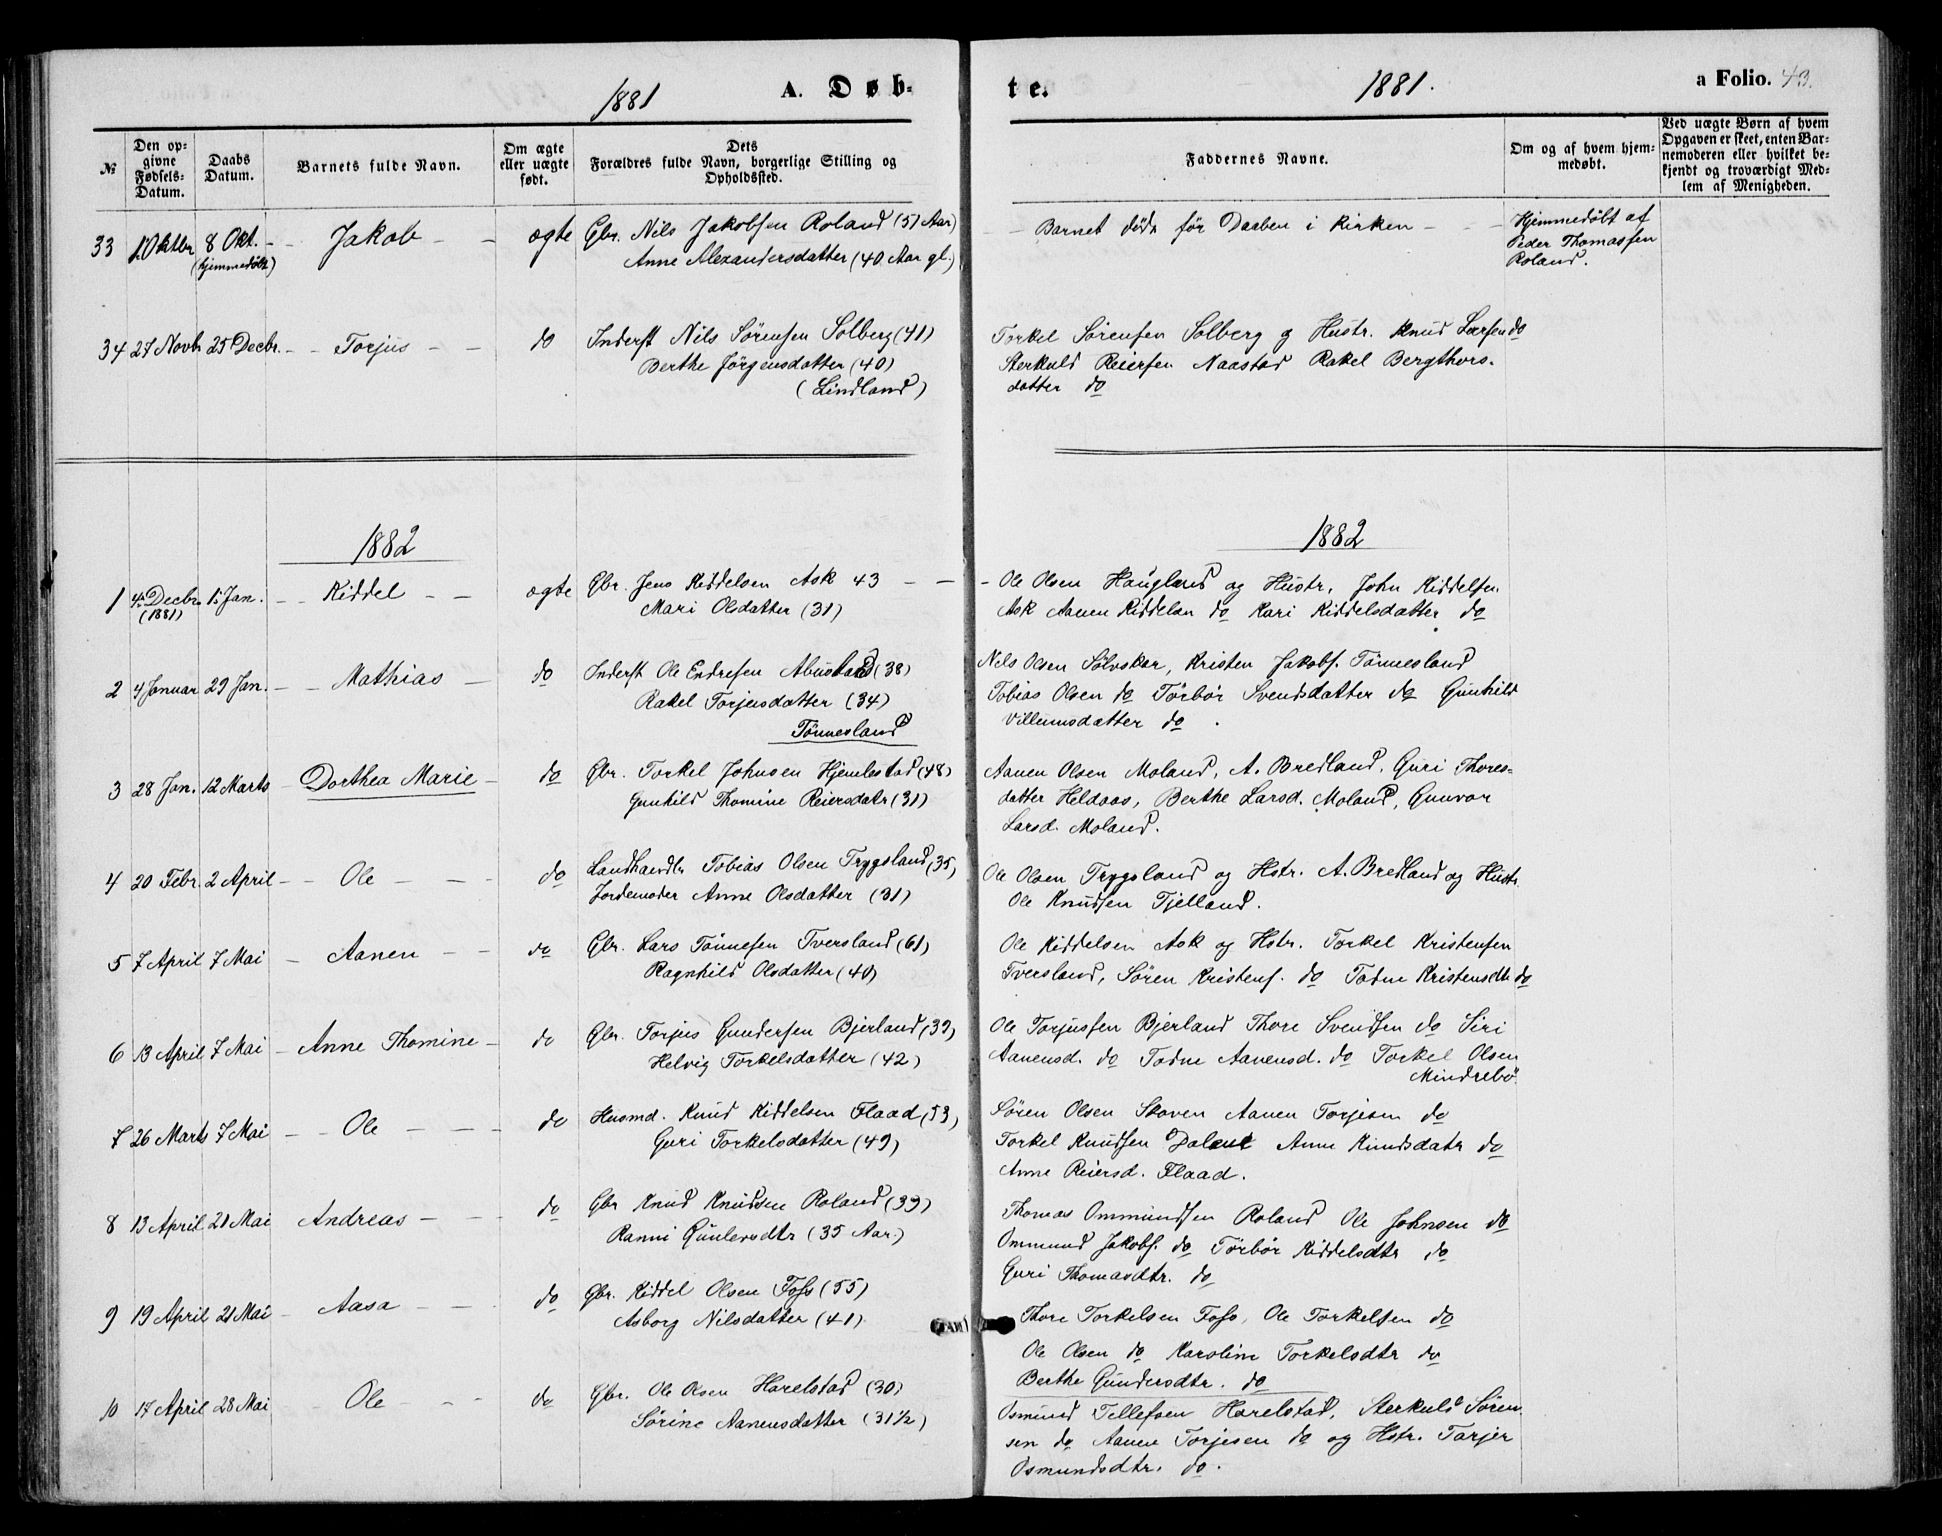 1881 A. Døb-
te. 1881. a Folio. 43.
№ Den op-givne Fødsels-Datum. Daabs Datum. Barnets fulde Navn. Om ægte eller uægte født. Dets Forældres fulde Navn, borgerlige Stilling og Opholdssted.
Faddernes Navne. Om og af hvem hjem-medøbt. Ved uægte Børn af hvem Opgaven er skeet, enten Bar-nemoderen eller hvilket be-kjendt og troværdigt Med-lem af Menigheden.
33 1 Oktbr 8 Okt. - - Jakob - - ægte Gbr. Nils Jakobsen Roland (51 Aar)
(hjemmedøbt) Anne Alexandersdatter (40 Aar gl.)
Barnet døde før Daaben i Kirken - - - Hjemmedøbt af
Peder Thomassen
Roland.
34 27 Novb 25 Decbr. - - Torjus - - do Inderst Nils Sørensen Solberg (41)
Berthe Jørgensdatter (40)
(Lindland)
Torkel Sørensen Solberg og Hustr. Knud Larsen do
Sterkuld Reiersen Naastad Rakel Bergthors-
datter do
1882
1882
1 4 Decbr. 1 Jan. - - Kiddel - - ægte Gbr. Jens Kiddelsen Ask 43 - -
(1881) Mari Olsdatter (31)
- Ole Olsen Haugland og Hustr, John Kiddelsen
Ask Aanen Kiddelsn do Kari Kiddelsdatter do
2 4 Januar 29 Jan. - - Mathias - do Inderst Ole Endresen Abustad (38)
Rakel Torjusdatter (34)
Tønnesland
Nils Olsen Sølvskar, Kristen Jakobs. Tønnesland
Tobias Olsen do Tørbør Svendsdatter do Gunhild
Villumsdatter do.
3 28 Jan. 12 Marts - Dorthea Marie - do Gbr. Torkel Johnsen Hjemlestad (48)
Gunhild Thomine Reiersdatr (31)
Aanen Olsen Moland, A. Bredland, Guri Thores-
datter Heldaas, Berthe Larsd. Moland, Gunvor
Larsd. Moland.
4 20 Febr. 2 April - - Ole - - do Landhandlr Tobias Olsen Trygsland (35)
Jordemoder Anne Olsdatter (31)
Ole Olsen Trygsland og Hstr. A. Bredland og Hustr
Ole Knudsen Tjelland.
5 7 April 7 Mai - Aanen - - do Gbr. Lars Tønnesen Tversland (61)
Ragnhild Olsdatter (40)
Ole Kiddelsen Ask og Hstr. Torkel Kristensen
Tversland, Søren Kristens. do Todne Kristensdtr do
6 13 April 7 Mai - Anne Thomine - do Gbr. Torjus Gundersen Bjerland (39)
Helvig Torkelsdatter (42)
Ole Torjussen Bjerland Thore Svendsen do Siri
Aanensd. do Todne Aanensd. do Torkel Olsen
Mindrebø.
7 26 Marts 7 Mai - - Ole - - do Husmd. Knud Kiddelsen Flaad (53)
Guri Torkelsdatter (49)
Søren Olsen Skoven Aanen Torjesen do
Torkel Knudsen Dalane Anne Knudsdatr do
Anne Reiersd. Flaad.
8 13 April 21 Mai Andreas - - do Gbr Knud Knudsen Roland (39)
Ranni Gunlevsdtr (35 Aar.)
Thomas Ommundsen Roland Ole Johnsen do
Ommund Jakobs. do Tørbør Kiddelsdtr do
Guri Thomasdtr. do
9 19 April 21 Mai - Aasa - - do Gbr. Kiddel Olsen Foss (55)
Asborg Nilsdatter (41)
Thore Torkelsen Foss, Ole Torkelsen do
Ole Olsen do Karoline Torkelsdtr do
Berthe Gundersdtr. do
10 17 April 28 Mai - Ole - - - do Gbr. Ole Olsen Harelstad (30)
Sørine Aanensdatter (31½)
Osmund Tellefsen Harelstad, Sterkuld Søren-
sen do Aanen Torjesen do og Hstr. Tarjer
Osmundsdtr. do.